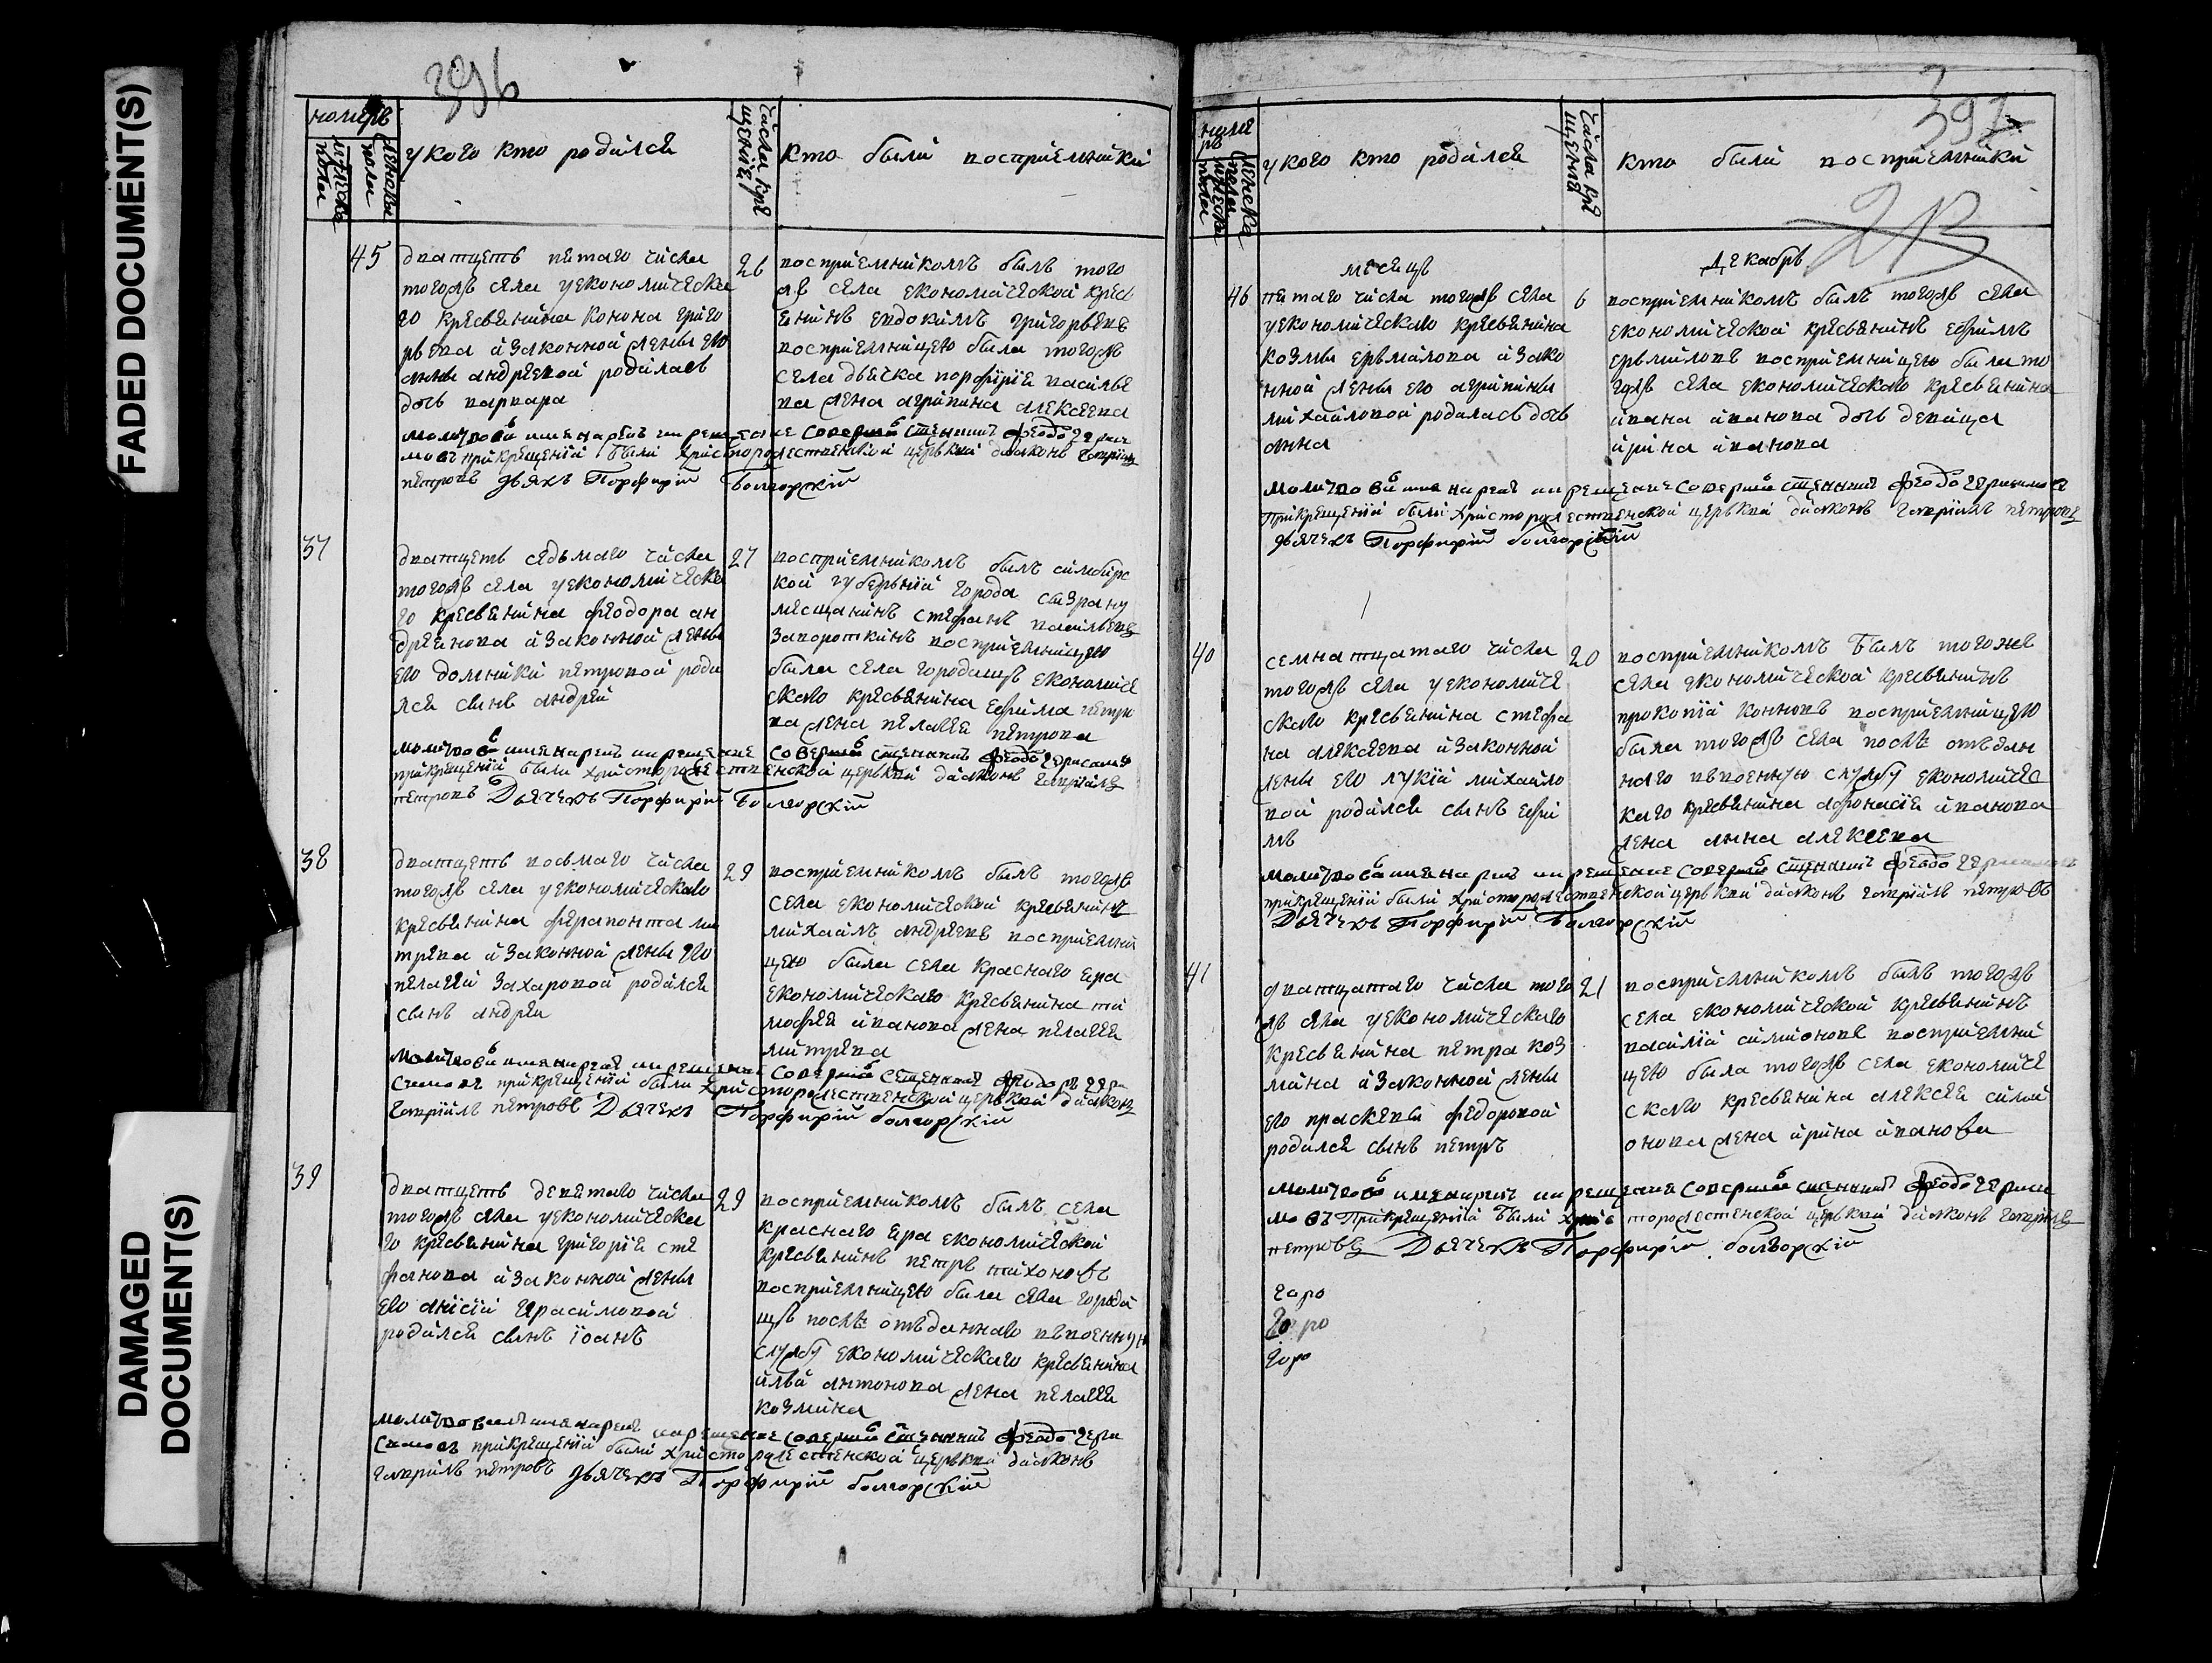 FADED DOCUMENT(S)
DAMAGED
DOCUMENT(S)
396
номеръ
мужеска пола
женска пола
у кого кто родился
числа кре
щения
кто были восприемники
45
дватцеть пятаго числа
тогожъ села у економическа
го крестьянина Конона Григо
рьева и законной жены его
анны андреевой родилась
дочь варвара
26
восприемникомъ былъ того
жъ села економической крес
янинъ евдокимъ григорьевъ
восприемницею была тогожъ
села дьячка порфирия василье
ва жена агрипина алексеева
молитвовалъ имя нареклъ и крещение соверши священникъ феодоръ гераси
мовъ при крещении были христорождественской церкви диаконъ гаврилъ
петровъ дьячекъ Порфирий Болгорский
37
дватцеть седьмаго числа
тогожъ села у економическа
го крестьянина феодора ан
дреянова и законной жены
его домники петровой роди
лся сынъ андрей
27
восприемникомъ былъ симбирс
кой губернии города сызрану
месщанинъ стефанъ васильевъ
завороткинъ восприемницею
была села городищъ економиче
скаго крестьянина ефима петро
ва жена пелагея петрова
молитвова имя нареклъ и крещение соверши священникъ феодоръ герасимо
при крещении были христорождественской церкви диаконъ гаврилъ
петровъ Дьячекъ Порфирий Болгорский
38
дватцеть восьмаго числа
тогожъ села у економическаго
крестьянина ферапонта ми
трева и законной жены его
пелагеи захаровой родился
сынъ андрей
29
восприемникомъ былъ тогожъ
села економической крестьянинъ
михаилъ андреевъ восприемни
цею была села краснаго яра
економическаго крестьянина ти
мофея иванова жена пелагея
митрева
молитвова имя нареклъ и крещение соверши священникъ феодоръ гера
симовъ при крещении были христорождественской церкви диаконъ
гаврилъ петровъ Дьячекъ Порфирий болгорский
39
дватцеть девятаго числа
тогожъ села у економическа
го крестьянина григория сте
фанова и законной жены
его анисии герасимовой
родился сынъ иоанъ
29
восприемникомъ былъ села
краснаго яра економической
крестьянинъ петръ тихоновъ
восприемницею была села городи
щъ после отъданнаго ввоенную
службу економическаго крестьянина
ильи антонова жена пелагея
козмина
молитвовалъ имя нареклъ и крещение соверши священникъ феодоръ гера
симовъ при крещении были христорождественской церкви диаконъ
гаврилъ петровъ дьячекъ Порфирий болгорский
397
номе
ръ
мужеска пола
женска пола
у кого кто родился
числа кре
щения
кто были восприемники
месецъ декабрь
46
пятаго числа тогожъ села
у економическаго крестьянина
козмы ермилова и зако
нной жены его агрипины
михайловой родилась дочь
анна
6
восприемникомъ былъ тогожъ села
економической крестьянинъ ефимъ
ермиловъ восприемницею была то
гожъ села економическаго крестьянина
ивана иванова дочь девица
ирина иванова
молитвова имя нареклъ и крещение соверши священникъ феодоръ герасимовъ
при крещении были христорождественской церкви диаконъ гаврилъ петровъ
дьячекъ Порфирий болгорский
40
семнатцатаго числа
тогожъ села у економиче
скаго крестьянина стефа
на алексеева и законной
жены его лукии михайло
вой родился сынъ ефи
мъ
20
восприемникомъ былъ тогоже
села економической крестьянинъ
прокопий кононовъ восприемницею
была тогожъ села после отъдан
наго ввоенную службу економичес
каго крестьянина афонасия иванова
жена анна алексеева
молитвова имя нареклъ и крещение соверши священникъ феодоръ герасимовъ
при крещении были христорождественской церкви диаконъ гаврилъ петровъ
Дьячекъ Порфирий Болгорский
41
дватцатаго числа того
жъ села у економическаго
крестьянина петра коз
мина и законной жены
его прасковьи федоровой
родился сынъ петръ
21
восприемникомъ былъ тогожъ
села економической крестьянинъ
василий симионовъ восприемни
цею была тогожъ села економиче
скаго крестьянина алексея сими
онова жена ирина иванова
молитвова имя нареклъ и крещение соверши священникъ феодоръ гераси
мовъ При крещении были христорождестенской церкви диаконъ гаврилъ
петровъ Дьячекъ Порфирий болгорский